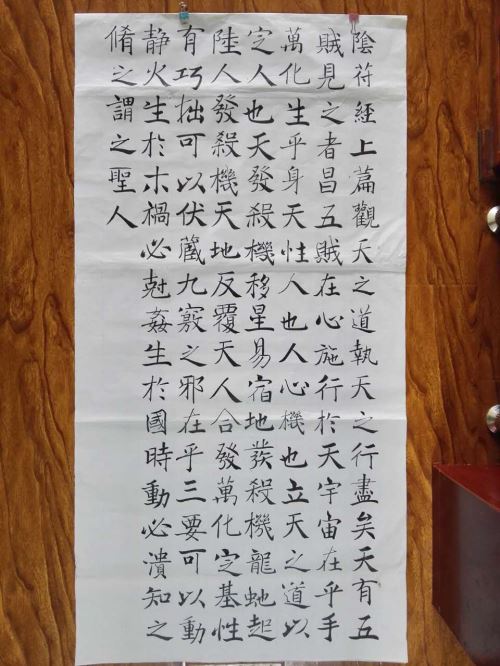 陰苻經上篇觀天之道執天之行盡矣天有五
賊見之者昌五賊在心施行於天宇宙在乎手
萬化生乎身天性人也人心機也立天之道以
定人也天發殺機移星易宿地發殺機龍虵起
陸人發殺機天地反覆天人合發萬化定基性
有巧拙可以伏藏九竅之邪在乎三要可以動
静火生於木禍必尅姦生於國時動必潰知之
脩之謂之聖人